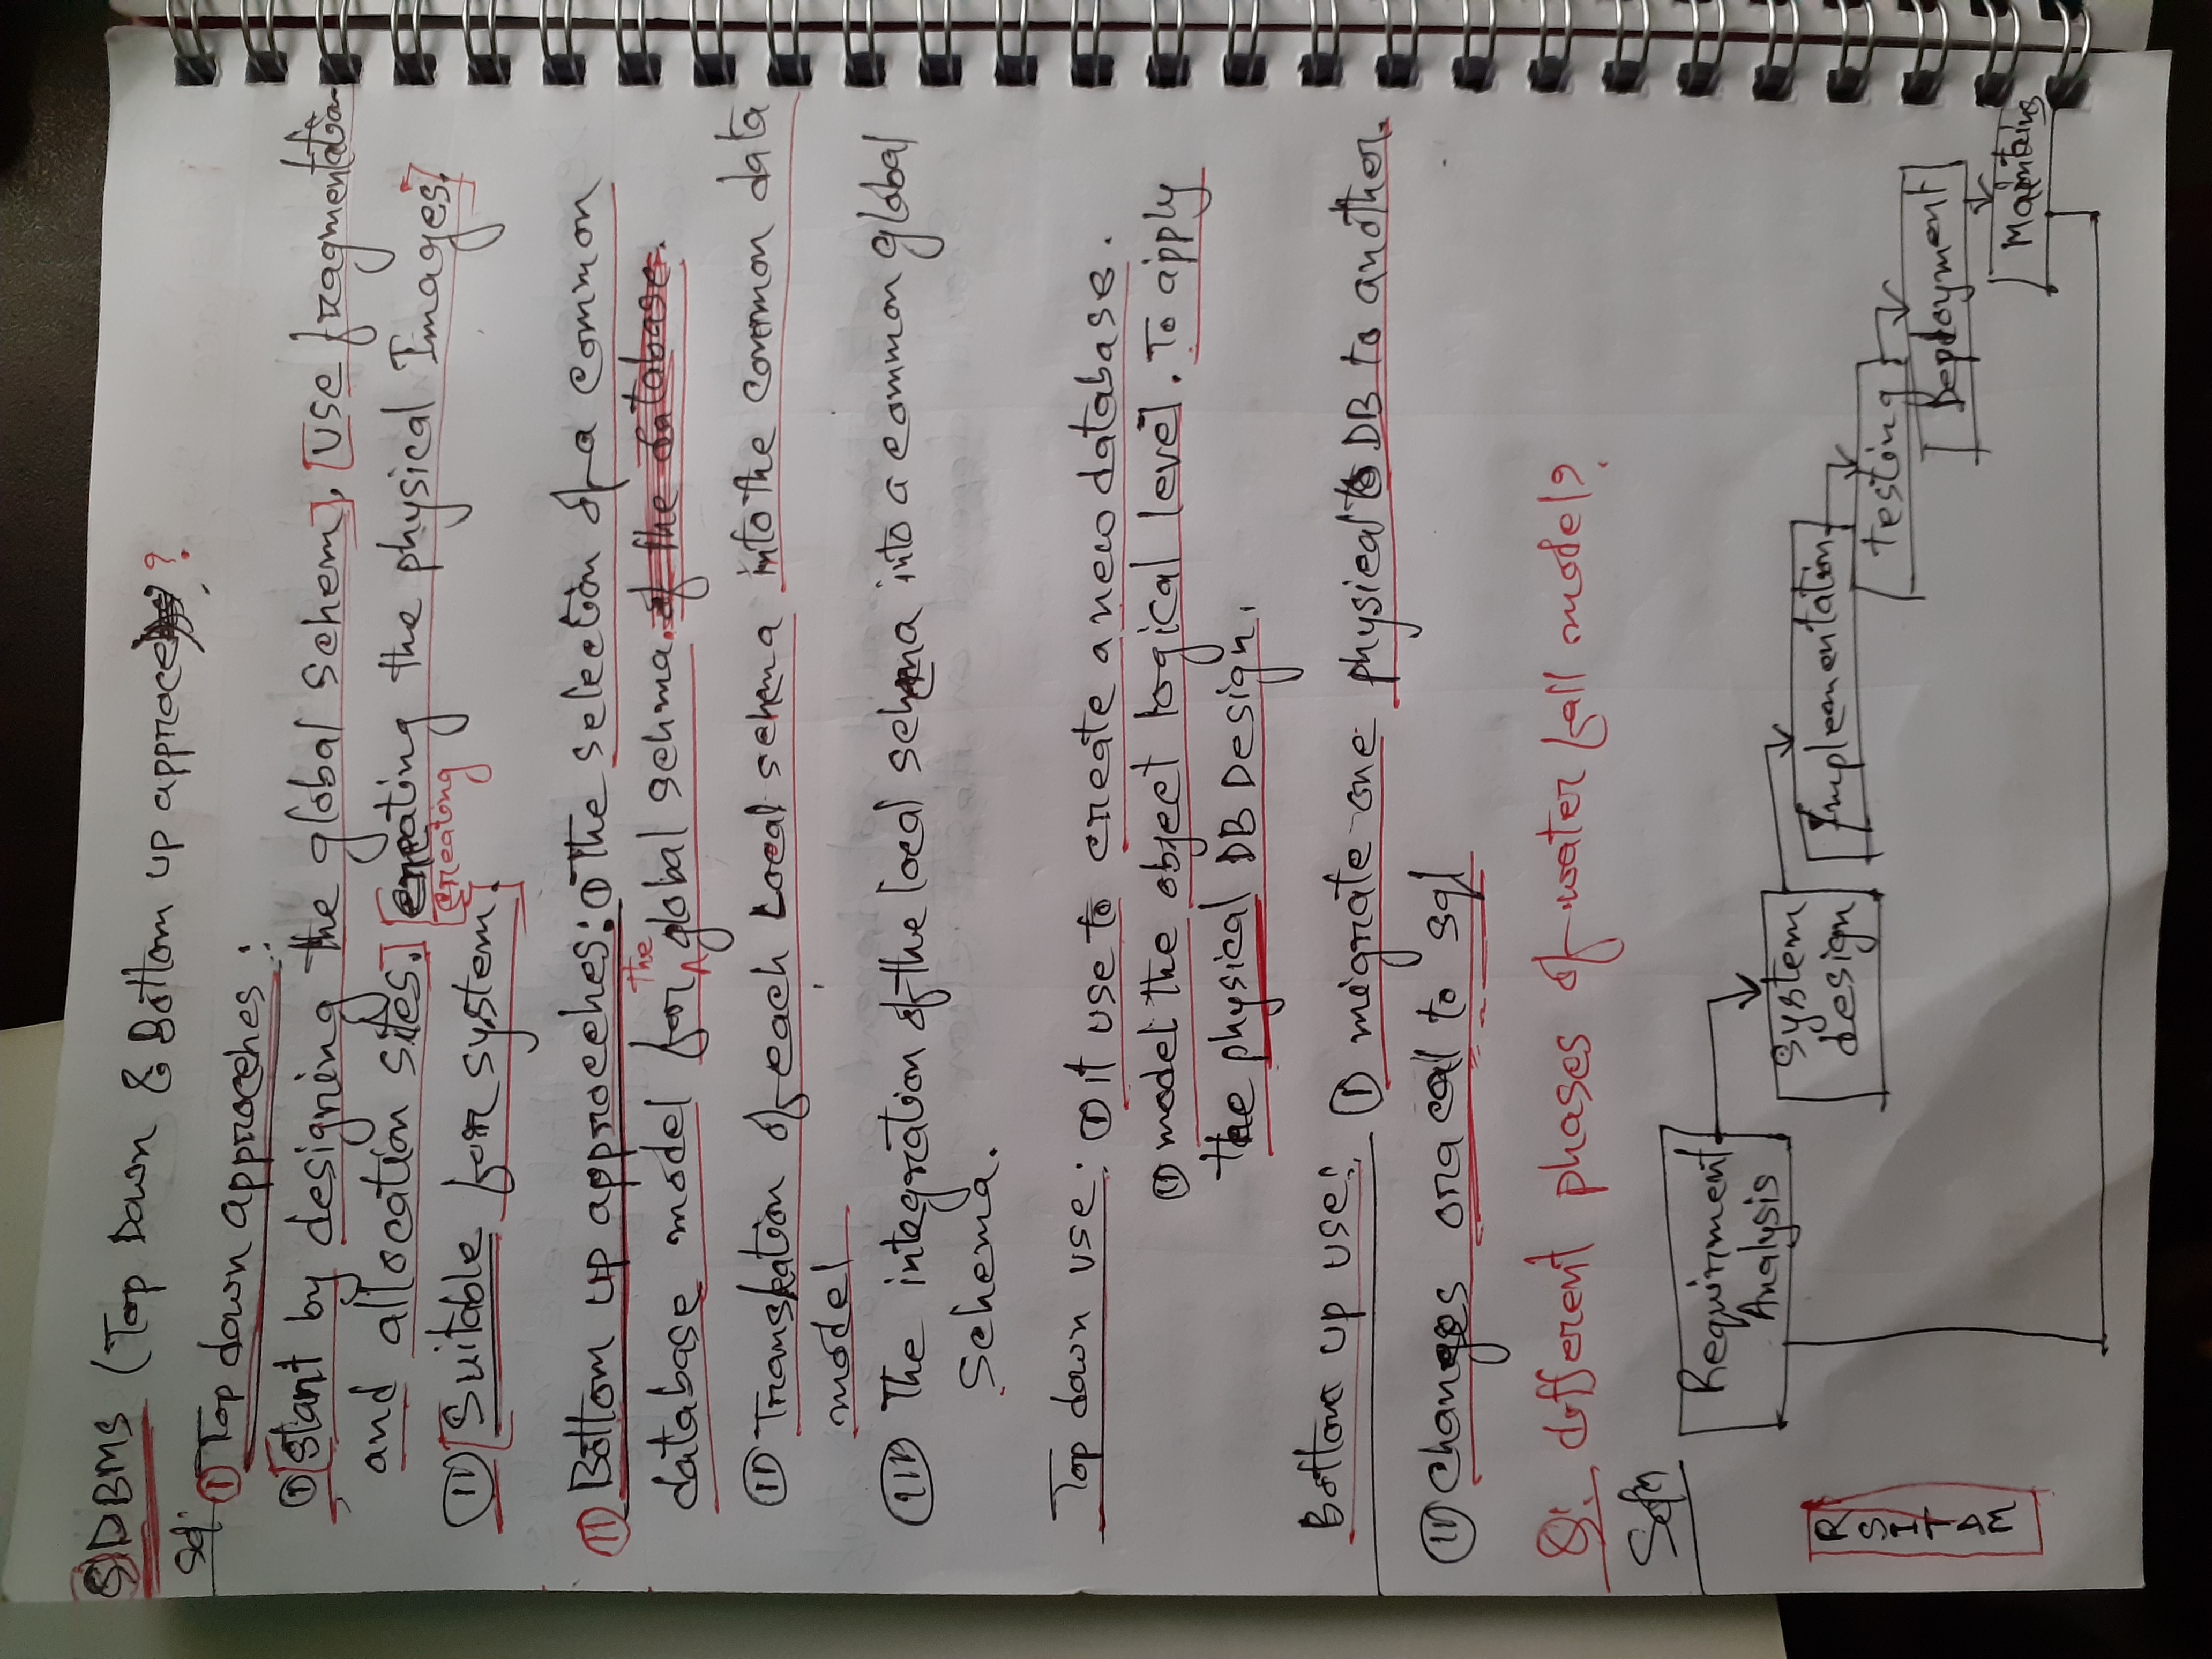 Q) DBMS (Top Down & Bottom up approce)?
Sol: (I) Top down approches:
(I) Start by designing the global schem], [use fragmentation
and allocation sites.] creating the physical Images?
creating
(II) [Suitable for system].
(II) Bottom up approches: (I) The selection of a common
database model for the global schma. of the database.
(II) Translation of each Local schema into the common data
model
(III) The integration of the local schema into a common global
Schema.
Top down use: (I) it use to create a new database.
(II) model the object logical level. To apply
the physical DB Design.
Bottom up use: (I) migrate one physical DB to another.
(II) Changes ora call to sql
Q: different phases of water fall model?
Soln
Requirnment
Analysis
System
design
Implementation
Testing
Deployment
Maintains
R
S
I
T
D
M